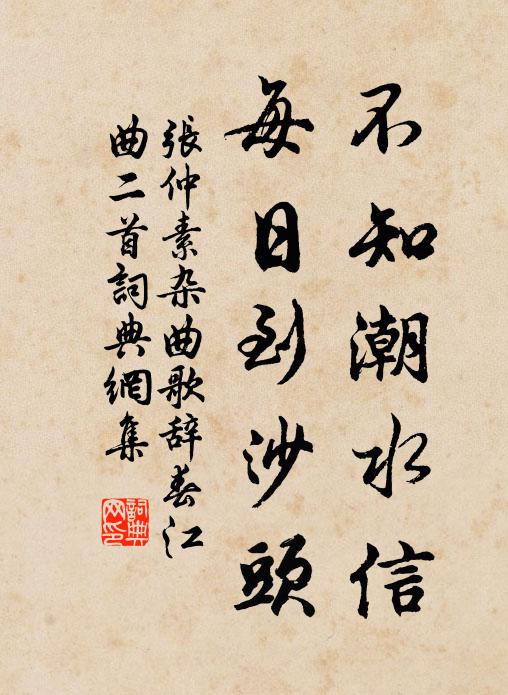 不知潮水信
每日到沙頭
張仲素杂曲歌辞春江
曲二首詞典網集
詞典网印